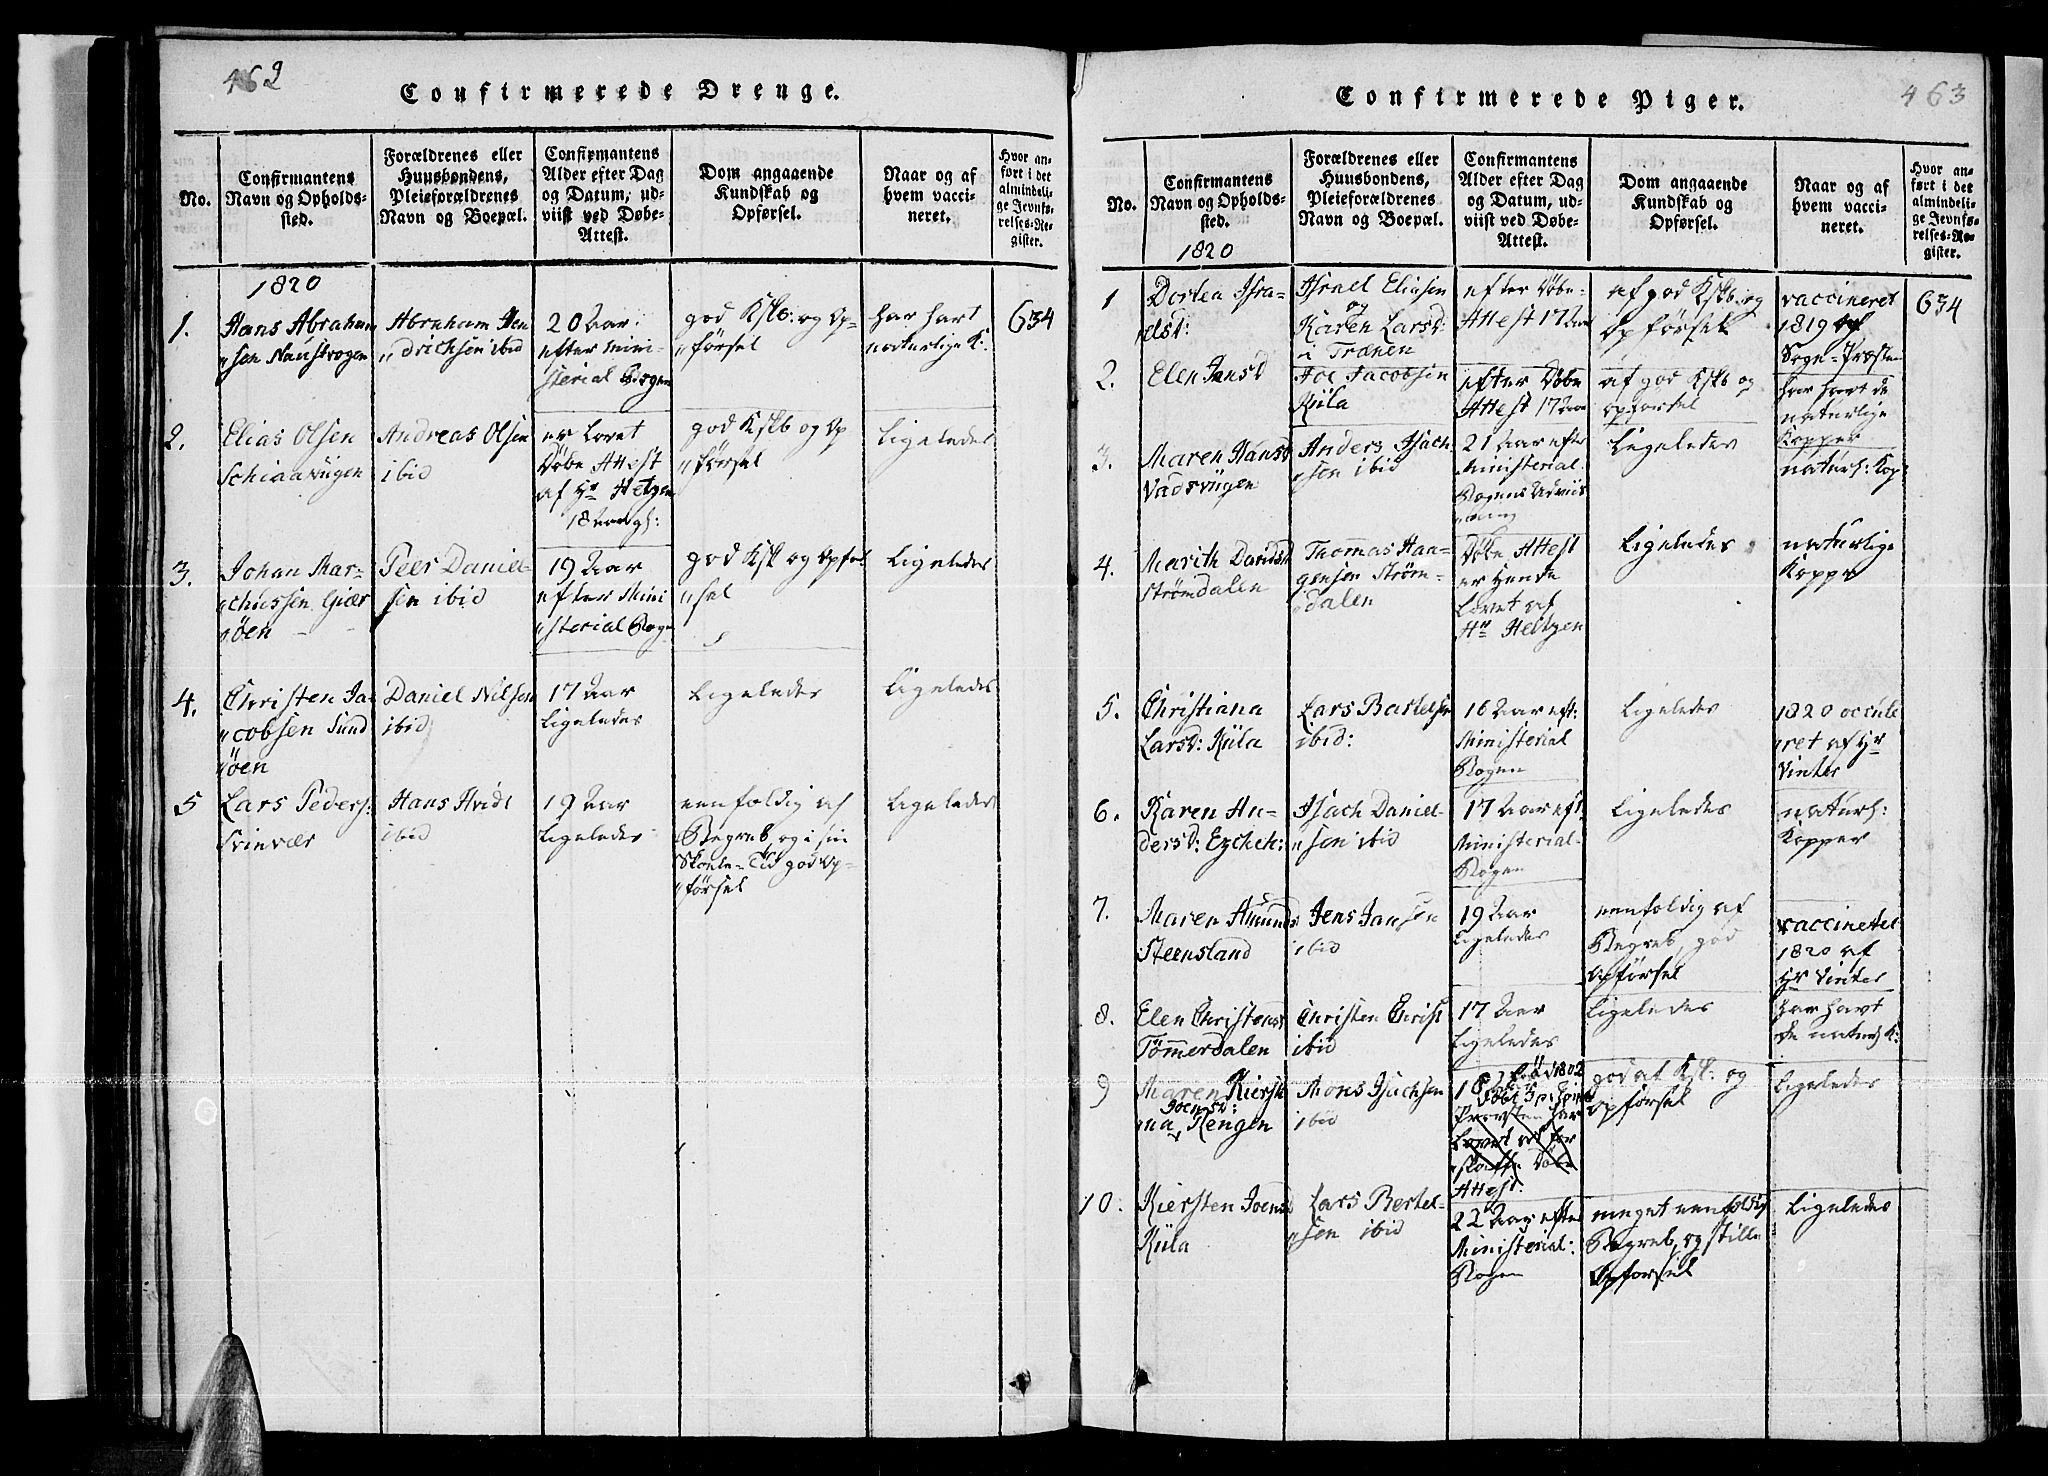 462
Confirmerede Drenge.
No.
Confirmantens
Navn og Opholds-
sted.
Forældrenes eller
Huusbondens,
Pleieforældrenes
Navn og Boepæl.
Confirmantens
Alder efter Dag
og Datum, ud-
viist ved Døbe-
Attest.
Dom angaaende
Kundskab og
Opførsel.
Naar og af
hvem vacci-
neret.
Hvor an-
ført i det
almindeli-
ge Jevnfø-
relses-Re-
gister.
1820
1.
Hans Abraham
"sen Naustvogen
Abraham Hen
"drichsen ibid
20 Aar
efter Mini-
sterial Bogen
god Kskb: og Op-
"førsel
har havt
naturlige K:
634
2.
Elias Olsen
Schiaavigen
Andreas Olsen
ibid
er Lovet
Døbe Attest
af Hr Heltzen
18 Aar
god Kskb og Op
"førsel
Ligeledes
3.
Johan Mar-
"chussen Giær
"øen
Peer Daniel-
sen ibid
19 Aar
efter Mini
"sterial Boge
god Ksk og Opfør
"sel
Ligeledes
4.
Christen Ja
"cobsen Sund
"øen
Daniel Nilsen
ibid
17 Aar
Ligeledes
Ligeledes
Ligeledes
5
Lars Peders:
Svinvær
Hans Hvid
ibid
19 Aar
Ligeledes
eenfoldig af
Begreb, og i sin
Skoele-Tid god Op-
"førsel
Ligeledes
463
Confirmerede Piger.
No.
Confirmantens
Navn og Opholds-
sted.
1820
Forældrenes eller
Huusbondens,
Pleieforældrenes
Navn og Boepæl.
Confirmantens
Alder efter Dag
og Datum, ud-
viist ved Døbe-
Attest.
Dom angaaende
Kundskab og
Opførsel.
Naar og af
hvem vacci-
neret.
Hvor an-
ført i det
almindeli-
ge Jevnfø-
relses-Re-
gister.
1
Dortea Isra-
elsd:
Israel Eliasen
og
Karen Larsd:
i Trænen
efter Døbe-
Attest 17 Aar
af god Kskb: og
Opførsel
vaccineret
1819 af
Sogne-Præsten
634
2.
Elen Jansd
Joe Jacobsen
Kiila
efter Døbe
Attest 17 Aar
af god Kskb og
opførsel
har havt de
naturlige
Kopper
3.
Maren Hansd
Vadsviigen
Anders Isach
"sen ibid
21 Aar efter
Ministerial
Bogens Udviis
"ning
Ligeledes
naturl: Kop
4.
Marith Davidsd
Strømdalen
Thomas Han-
gensen Strøm-
dalen
Døbe Attest
er hende
Lovet af
Hr Heltzen
Ligeledes
naturlige
Kopper
5.
Christiana
Larsd: Kiila
Lars Bartelsen
ibid:
16 Aar eft:
Ministerial
Bogen
Ligeledes
1820 occule
"ret af Hr
Vinter
6.
Karen An-
dersd:
Isach Daniel-
"sen ibid
17 Aar eft
Ministerial-
Bogen
Ligeledes
naturl:
Kopper
7.
Maren Amunds
Steensland
Jens Jansen
ibid
19 Aar
Ligeledes
eenfoldig af
Begreb, god
Opførsel
vaccineret
1820 af
Hr Vinter
8.
Elen Christens
Tømmerdalen
Christen Christ
ibid
17 Aar
Ligeledes
Ligeledes
har havt
de naturl K:
9
Maren Kiersti
"na Joensd: Rengen
Mons Isachsen
ibid
18
Fød 1802
Præsten har
Lovet at for
"skaffe Døbe
Attest.
god af Ksk: og
Opførsel
Ligeledes
10.
Kiersten Joensd
Kiila
Lars Bertel-
"sen ibid
22 Aar efter
Ministerial:
Bogen
meget eenfoldig
Begreb, og stille
Opførsel
Ligeledes